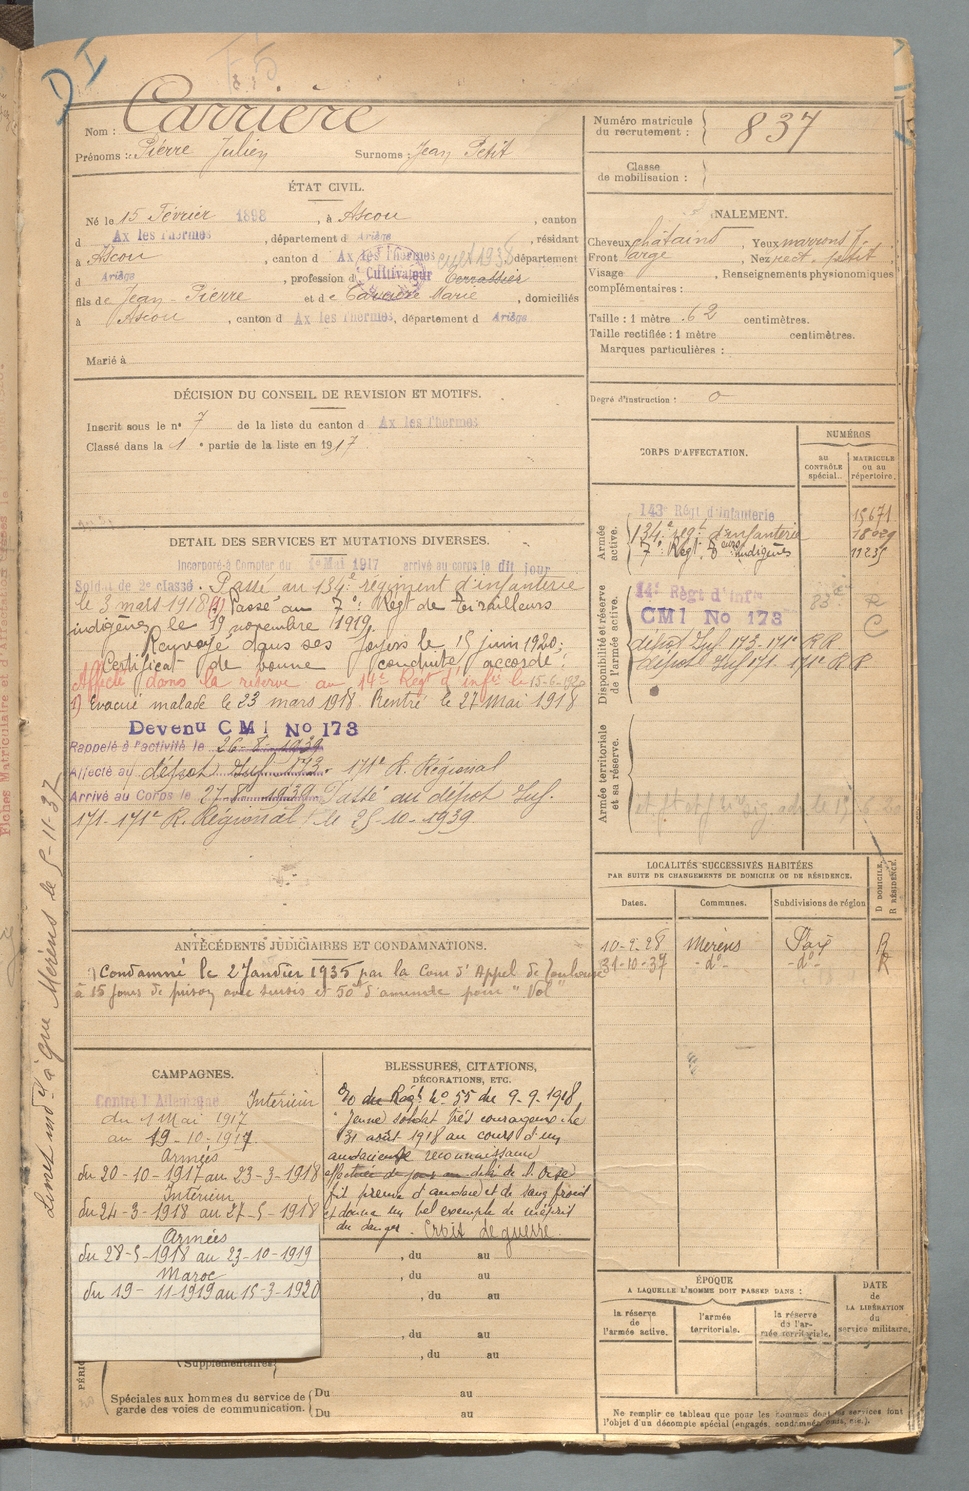 DI
Nom : Carrière
Prénoms : Pierre Julien Surnoms : Jean Petit
Numéro matricule du recrutement : 837
Classe de mobilisation :
ÉTAT CIVIL.
Né le 15 Février 1898, à Ascou, canton
d Ax les Thermes, département d Ariège, résidant
à Ascou, canton d Ax les Thermes, département
d Ariège, profession d Cultivateur Terrassier
fils de Jean-Pierre et de Carrière Marie, domiciliés
à Ascou, canton d Ax les Thermes, département d Ariège
Marié à
NALEMENT.
Cheveux châtains, Yeux marrons
Front large Nez rect. petit
Visage , Renseignements physionomiques
complémentaires :
Taille : 1 mètre 62 centimètres.
Taille rectifiée : 1 mètre centimètres.
Marques particulières :
Degré d'instruction : 0
DÉCISION DU CONSEIL DE REVISION ET MOTIFS.
Inscrit sous le n° 7 de la liste du canton d Ax les Thermes
Classé dans la 1e partie de la liste en 1917
DETAIL DES SERVICES ET MUTATIONS DIVERSES.
Incorporé à Compter du 1e Mai 1917 arrivé au corps le dit jour
Soldat de 2e classe. Passé au 134e régiment d'infanterie
le 3 mars 1918 (1) Passé au 7e Régt de Tirailleurs
indigènes le 19 novembre 1919.
Renvoyé dans ses foyers le 15 juin 1920;
Certificat de bonne conduite accordé.
Affecté dans la réserve au 14e Régt d'infie le 15-6-1920
1) Evacué malade le 23 mars 1918. Rentré le 27 Mai 1918
Devenu CMI No 173
Rappelé à l'activité le 26-8-1939
Affecté au dépôt Inf. 173. 171e R. Régional
Arrivé au Corps le 27-8-1939 Passé au dépôt Inf.
171-171e R. Régional le 25-10-1939
CORPS D'AFFECTATION.
NUMÉROS
AU CONTRÔLE spécial.
MATRICULE ou au répertoire.
Armée active.
143e Régt d'Infanterie 15671
134e régt d'infanterie 18029
7e Régt Teurs indigènes 11235
Disponibilité et réserve de l'armée active.
14e Régt d'Infie
CMI No 173
dépôt Inf 173-171e R R.
dépôt Inf 171. 171e R R
Armée territoriale et sa réserve.
ANTÉCÉDENTS JUDICIAIRES ET CONDAMNATIONS.
Condamné le 2 Janvier 1935 par la Cour d'Appel de Toulouse
à 15 jours de prison avec sursis et 50f d'amende pour "Vol"
LOCALITÉS SUCCESSIVES HABITÉES
PAR SUITE DE CHANGEMENTS DE DOMICILE OU DE RÉSIDENCE.
Dates. Communes. Subdivisions de région D DOMICILE. R RÉSIDENCE.
10-2-28 Merens Foix R
31-10-37 -do- -do- R
CAMPAGNES.
Contre l'Allemagne Intérieur
du 1 Mai 1917
au 19-10-1917
Armées
du 20-10-1917 au 23-3-1918
Intérieur
du 24-3-1918 au 27-5-1918
Armées
du 28-5-1918 au 23-10-1919
Maroc
du 19-11-1919 au 15-3-1920
BLESSURES, CITATIONS,
DÉCORATIONS, ETC.
O du Régt No 55 du 9-9-1918,
"Jeune soldat très courageux. Le
31 août 1918 au cours d'un
audacieuse reconnaissance
effectuée de jour au delà de l'Oise
fit preuve d'audace et de sang froid
et donne un bel exemple de mépris
du danger. Croix de guerre.
, du au
, du au
, du au
, du au
, du au
Supplémentaires
PÉRIO
Spéciales aux hommes du service de garde des voies de communication.
Du au
Du au
ÉPOQUE
A LAQUELLE L'HOMME DOIT PASSER DANS :
la réserve de l'armée active.
l'armée territoriale.
la réserve de l'armée territoriale.
DATE de LA LIBÉRATION du service militaire.
Ne remplir ce tableau que pour les hommes dont les services font
l'objet d'un décompte spécial (engagés, condamnés, omis, etc.).
Livret indel à que Merens le 5-11-37